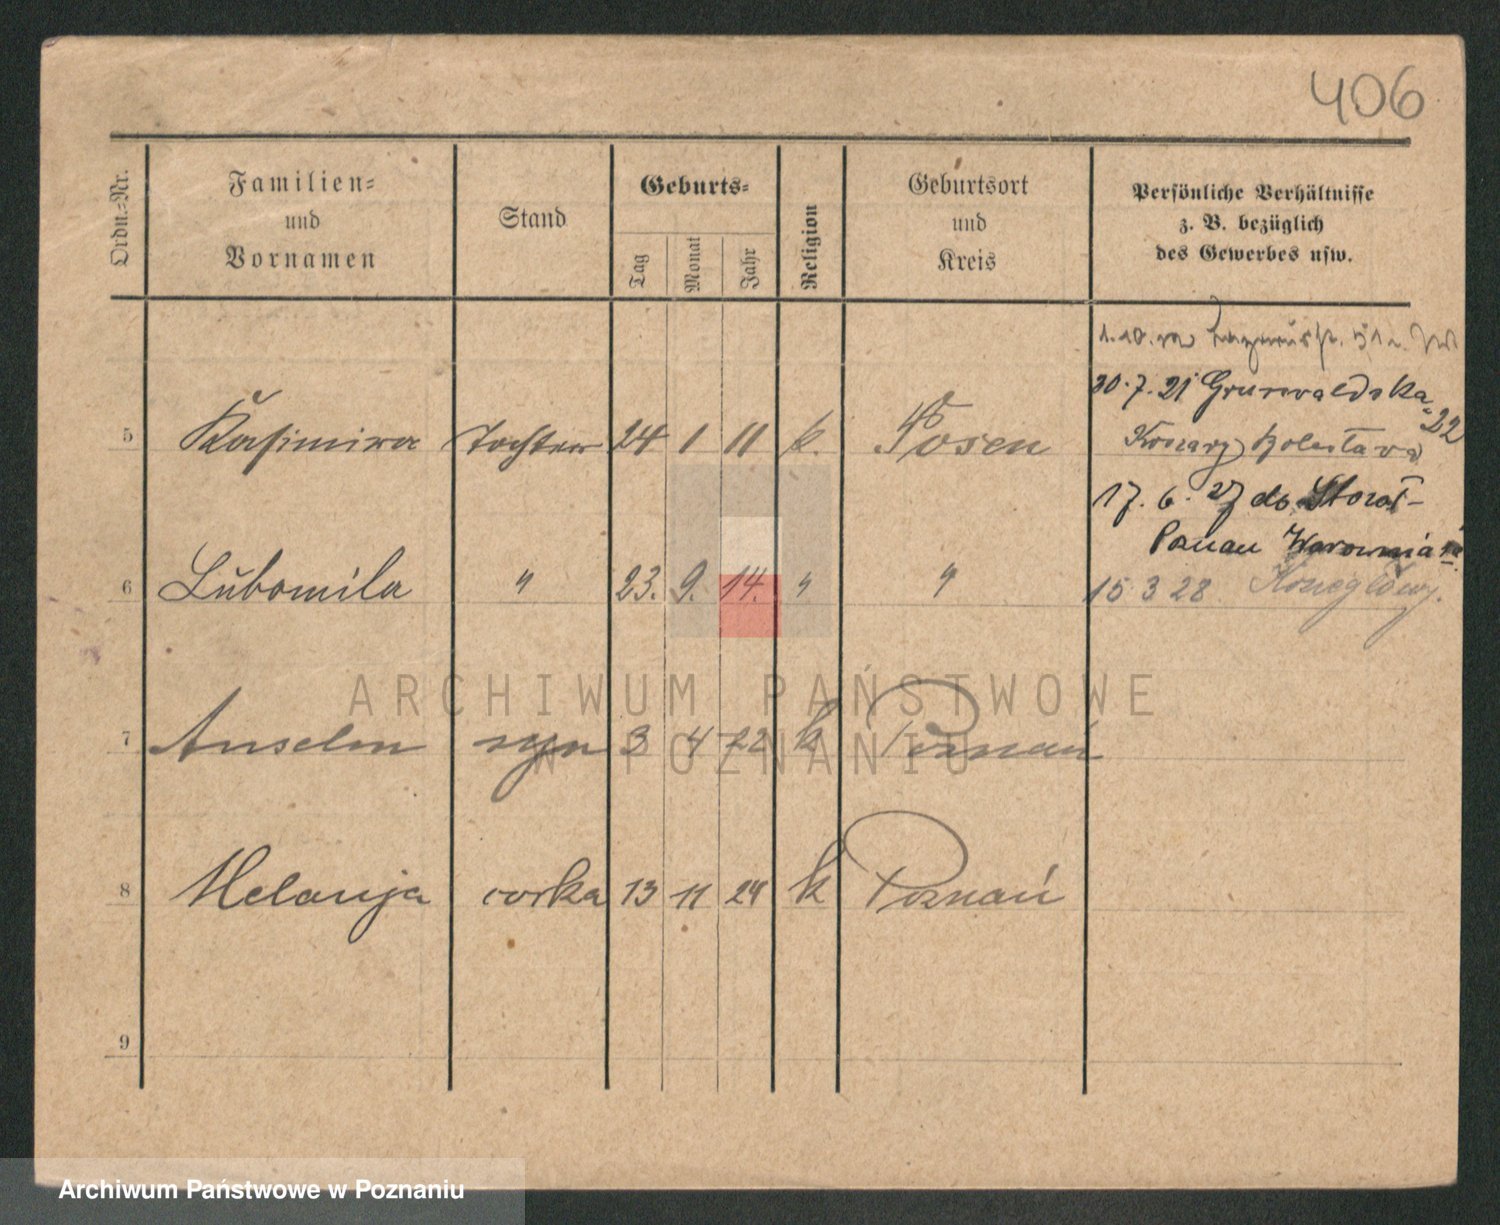 406
Ordn.-Nr.
Familien-
und
Vornamen
Stand
Geburts-
Tag
Monat
Jahr
Religion
Geburtsort
und
Kreis
Persönliche Verhältnisse
z. B. bezüglich
des Gewerbes usw.
1.10.
30.7.21 Grunwaldska
22
5 Kasimira Tochter 24 1 11 k. Posen
17. 6. 27 do
15 3 28
6 Lubomila " 23. 9. 14. " "
ARCHIWUM PAŃSTWOWE
W POZNANIU
7 Anselm syn 3 4 22 k Poznań
8 Melanja corka 13 11 24 k Poznań
9
Archiwum Państwowe w Poznaniu